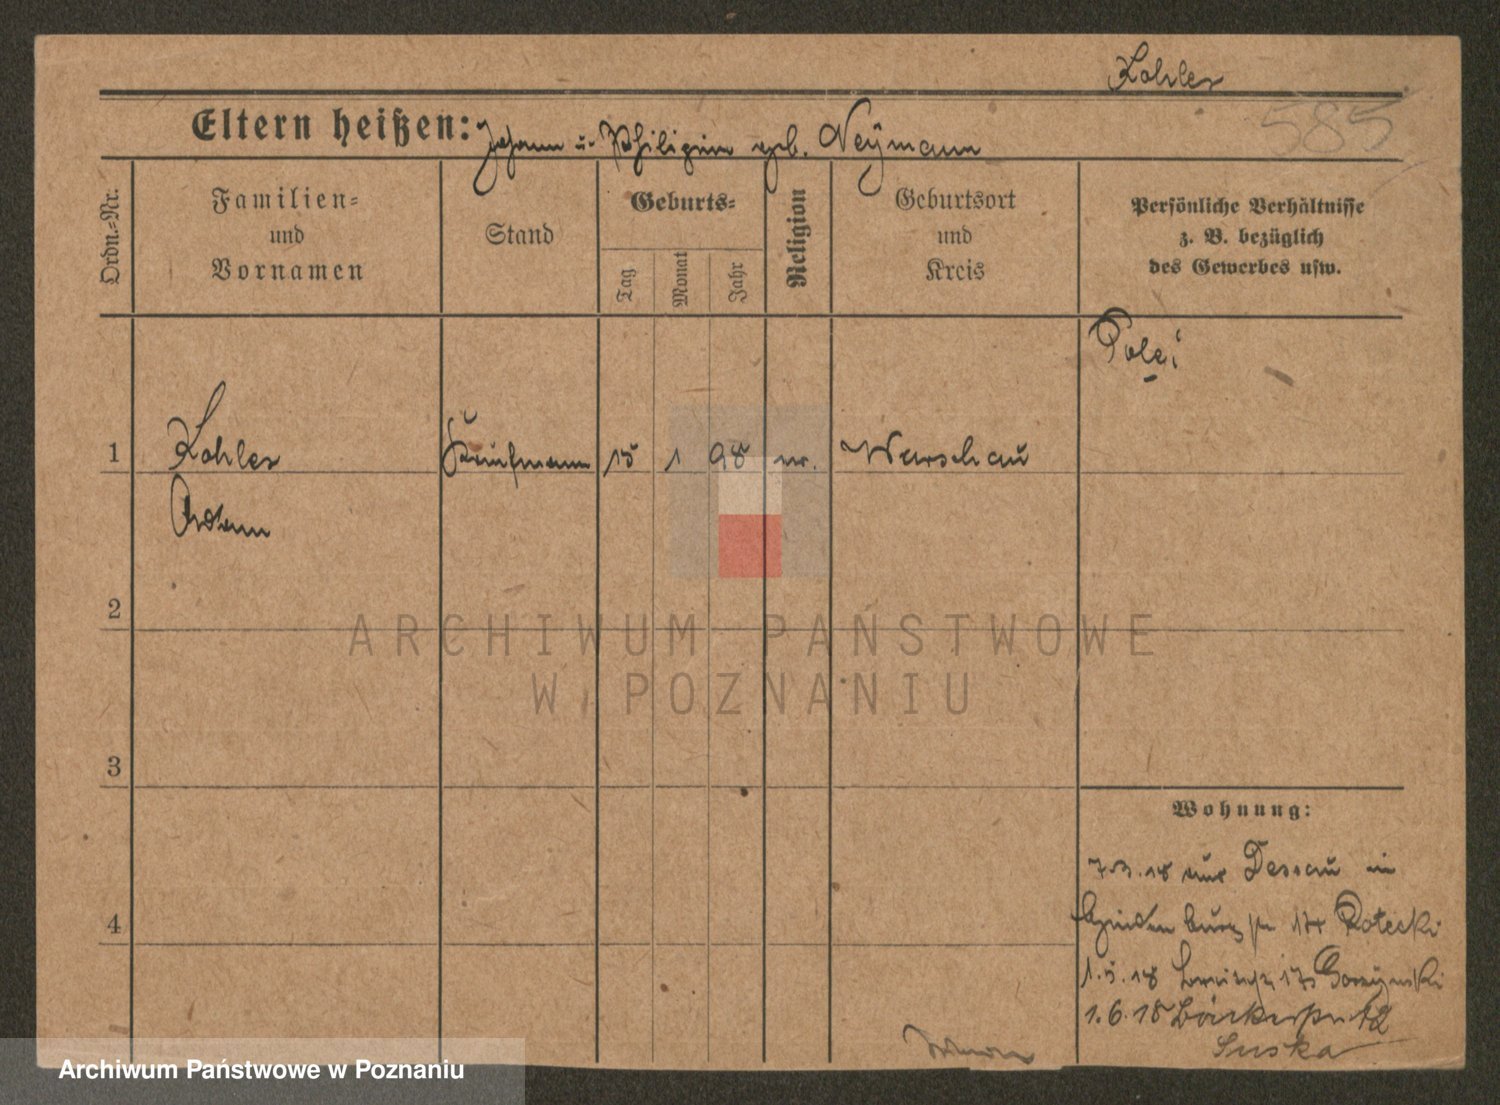 Kohler
585
Eltern heißen: Johann u. Philipine geb. Neÿmann
Ordn.-Nr.
Familien-
und
Vornamen
Stand
Geburts-
Tag
Monat
Jahr
Religion
Geburtsort
und
Kreis
Persönliche Verhältnisse
z. B. bezüglich
des Gewerbes usw.
Pole!
1 Kohler Kaufmann 15 1 98 Warschau
Adam
2
3
4
Wohnung:
7.3.18 aus Dessau in
Hindenburgstr 17 Rotecki
1.5.18 17 Gorzynski
1.6.18 Bäckerstr 12
Suska
ARCHIWUM PAŃSTWOWE
W POZNANIU
Archiwum Państwowe w Poznaniu